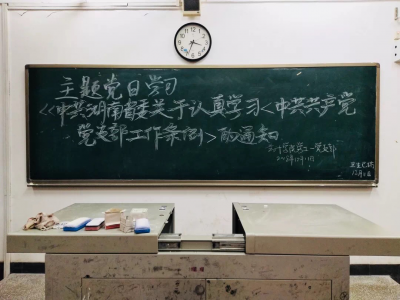 主题党日学习
《中共湖南省委关于认真学习<中共共产党
党支部工作条例>的通知
12月